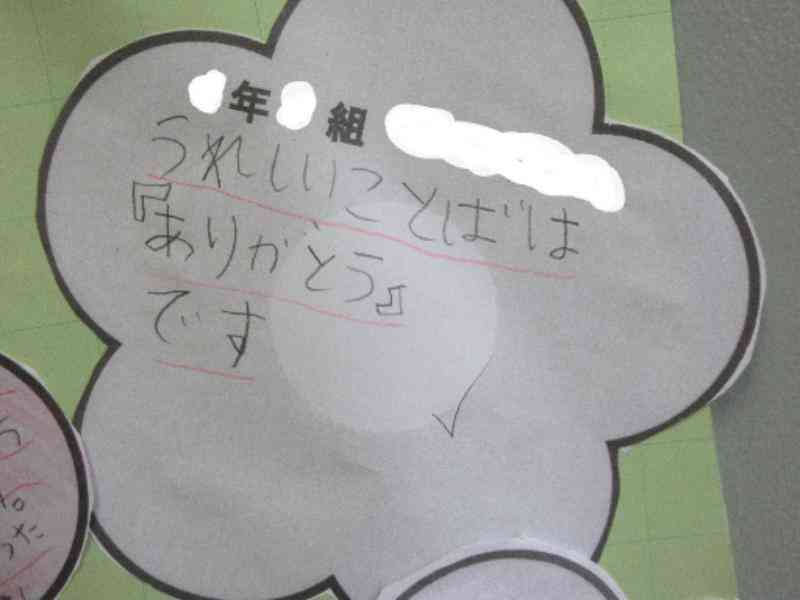 年 組
うれしいことばは
『ありがとう』
です
った